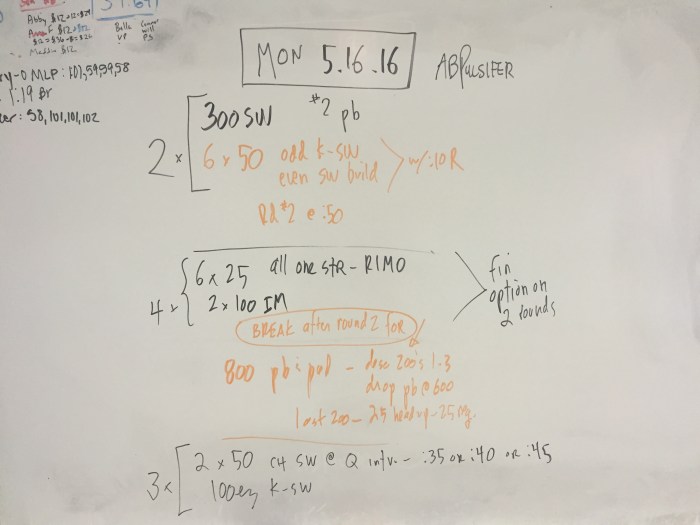 Abby $12
Anna F $12
Bella Conner
VP will
PS
$12
y-O MLP : 101,59,99,58
1:19 Br
er : 58, 101, 101, 102
MON 5.16.16
ABPULSIFER
2 x
300 SW #2 pb
6 x 50 odd K-SW
even SW build
w/ :10 R
Rd #2 @ :50
4 x
6 x 25 all one STR - RIMO
2 x 100 IM
fin
option on
2 rounds
BREAK after round 2 for
800 pb & pad - desc 200's 1-3
drop pb @ 600
last 200 - 25 head up - 25 ez
3 x
2 x 50 CH SW @ Q intv. - :35 or :40 or :45
100 ez K-SW